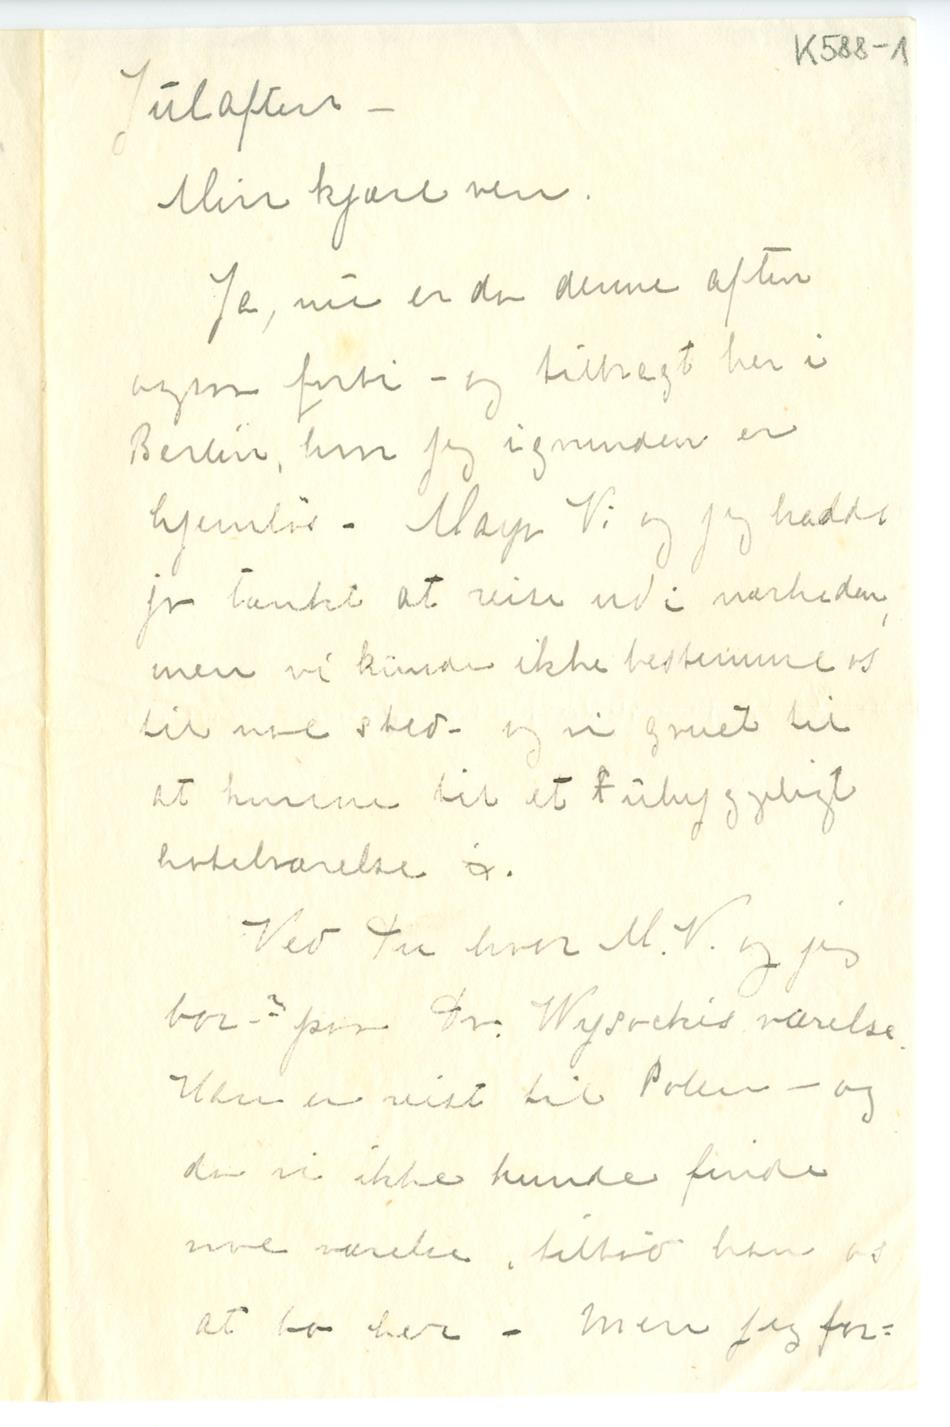 K588-1
Julaften –
Min kjære ven.
Ja, nu er da denne aften
ogsaa forbi – og tilbragt her i
Berlin, hvor jeg igrunden er
hjemløs – Maya V: og jeg hadde
jo tænkt at reise ud i nærheden,
men vi kunde ikke bestemme os
til noe sted – og vi gruet til
at komme til et uhyggeligt
hotelværelse.
Ved Du hvor M. V. og jeg
bor –? paa Dr. Wysockis værelse.
Han er reist til Polen – og
da vi ikke kunde finde
noe værelse, tilbød han os
at bo her – Men jeg for=